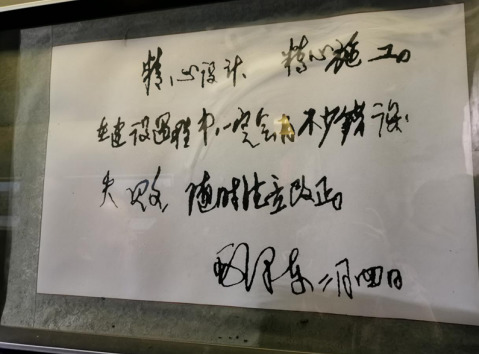 精心设计 精心施工
在建设过程中，一定会有不少错误
失败 随时注意改正
毛泽东 二月四日